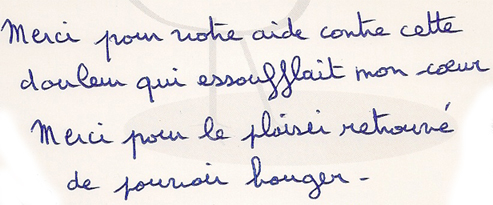 Merci pour votre aide contre cette
douleur qui essoufflait mon cœur
Merci pour le plaisir retrouvé
de pouvoir bouger -